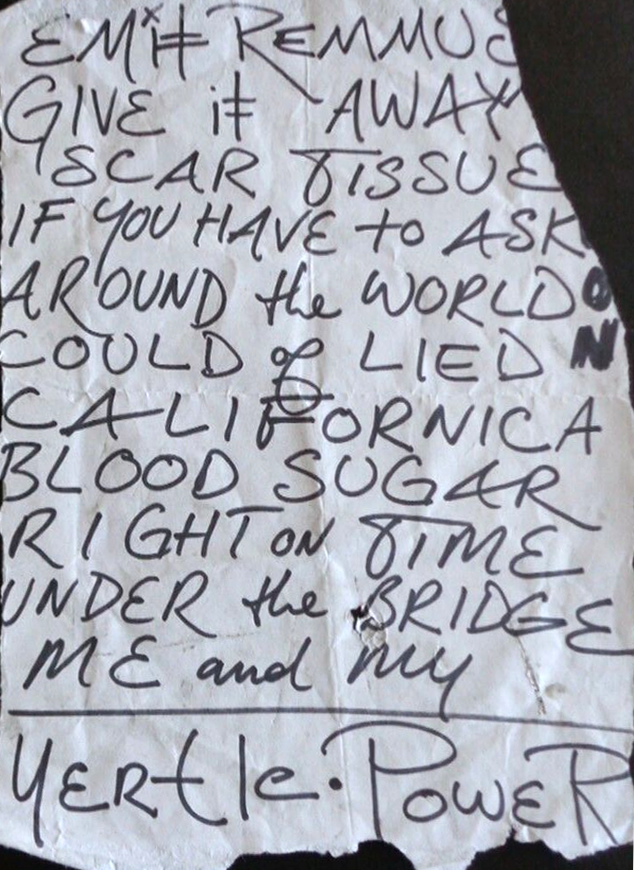 EMit REMMUS
GIVE it AWAY
SCAR TISSUE
IF YOU HAVE to ASK
AROUND the WORLD
COULD of LIED
CALIFORNICA
BLOOD SUGAR
RIGHT ON TIME
UNDER the BRIDGE
ME and MY
YERtle. POWER
ON